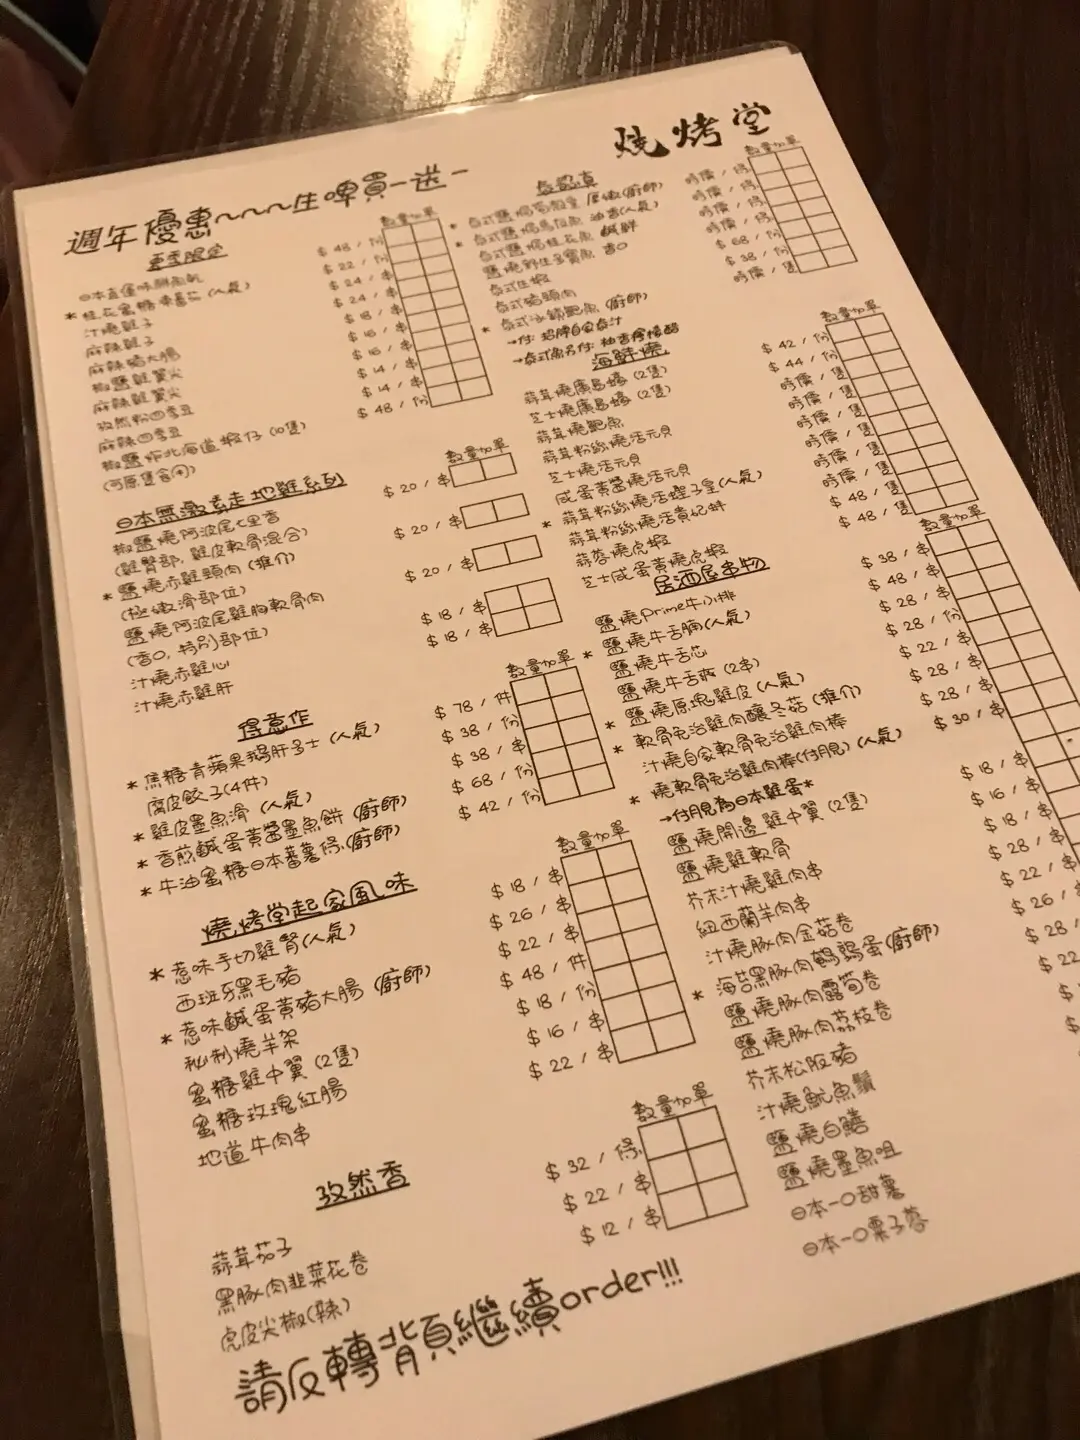 燒烤堂
週年優惠~~~生啤買一送一
夏季限定
數量加單
日本直運味醂魚乾 $48/份
*桂花蜜糖凍番茄(人氣) $22/份
汁燒雞子 $24/串
麻辣雞子 $24/串
麻辣豬大腸 $18/串
椒鹽雞翼尖 $16/串
麻辣雞翼尖 $16/串
孜然粉四季豆 $14/串
麻辣四季豆 $14/串
椒鹽炸北海道蝦仔(10隻) $48/份
(可原隻食用)
日本無激素走地雞系列
數量加單
椒鹽燒阿波尾七里香 $20/串
(雞臀部, 雞皮軟骨混合)
*鹽燒赤雞頸肉(推介) $20/串
(極嫩滑部位)
鹽燒阿波尾雞胸軟骨肉 $20/串
(香口, 特別部位)
汁燒赤雞心 $18/串
汁燒赤雞肝 $18/串
得意作
數量加單
*焦糖青蘋果鵝肝多士(人氣) $78/件
腐皮餃子(4件) $38/份
*雞皮墨魚滑(人氣) $38/串
*香煎鹹蛋黃醬墨魚餅(廚師) $68/份
*牛油蜜糖日本蕃薯條(廚師) $42/份
燒烤堂起家風味
數量加單
*惹味手切雞腎(人氣) $18/串
西班牙黑毛豬 $26/串
*惹味鹹蛋黃豬大腸(廚師) $22/串
秘制燒羊架 $48/件
蜜糖雞中翼(2隻) $18/份
蜜糖玫瑰紅腸 $16/串
地道牛肉串 $22/串
孜然香
數量加單
蒜茸茄子 $32/條
黑豚肉韮菜花卷 $22/串
虎皮尖椒(辣) $12/串
數量加單
時價/條
時價/條
時價/條
時價/條
泰式生蝦 $68/份
泰式豬頸肉 $38/份
*泰式冰鎮鮑魚(廚師) 時價/隻
→付: 招牌自家泰汁
海鮮燒
數量加單
蒜茸燒廣島蠔(2隻) $42/份
芝士燒廣島蠔(2隻) $44/份
蒜茸燒鮑魚 時價/隻
蒜茸粉絲燒活元貝 時價/隻
芝士燒活元貝 時價/隻
咸蛋黃醬燒活元貝 時價/隻
*蒜茸粉絲燒活蟶子皇(人氣) 時價/隻
蒜茸粉絲燒活貴妃蚌 時價/隻
蒜蓉燒虎蝦 $48/隻
芝士咸蛋黃燒虎蝦 $48/隻
居酒屋串物
數量加單
鹽燒Prime牛小排 $38/串
*鹽燒牛舌胸(人氣) $48/串
鹽燒牛舌芯 $28/串
鹽燒牛舌爽(2串) $28/份
*鹽燒原塊雞皮(人氣) $22/串
*軟骨免治雞肉釀冬菇(推介) $28/串
汁燒自家軟骨免治雞肉棒 $28/串
*燒軟骨免治雞肉棒(付月見)(人氣) $30/串
→付月見為日本雞蛋*
鹽燒開邊雞中翼(2隻) $18/串
鹽燒雞軟骨 $16/串
芥末汁燒雞肉串 $18/串
紐西蘭羊肉串 $28/串
汁燒豚肉金菇卷 $22/串
*海苔黑豚肉鵪鶉蛋(廚師) $26/串
鹽燒豚肉露筍卷 $28/
鹽燒豚肉荔枝卷 $22
芥末松阪豬
汁燒魷魚鬚
鹽燒白鱔
鹽燒墨魚咀
日本一口甜薯
日本一口栗子蓉
請反轉背頁繼續order!!!